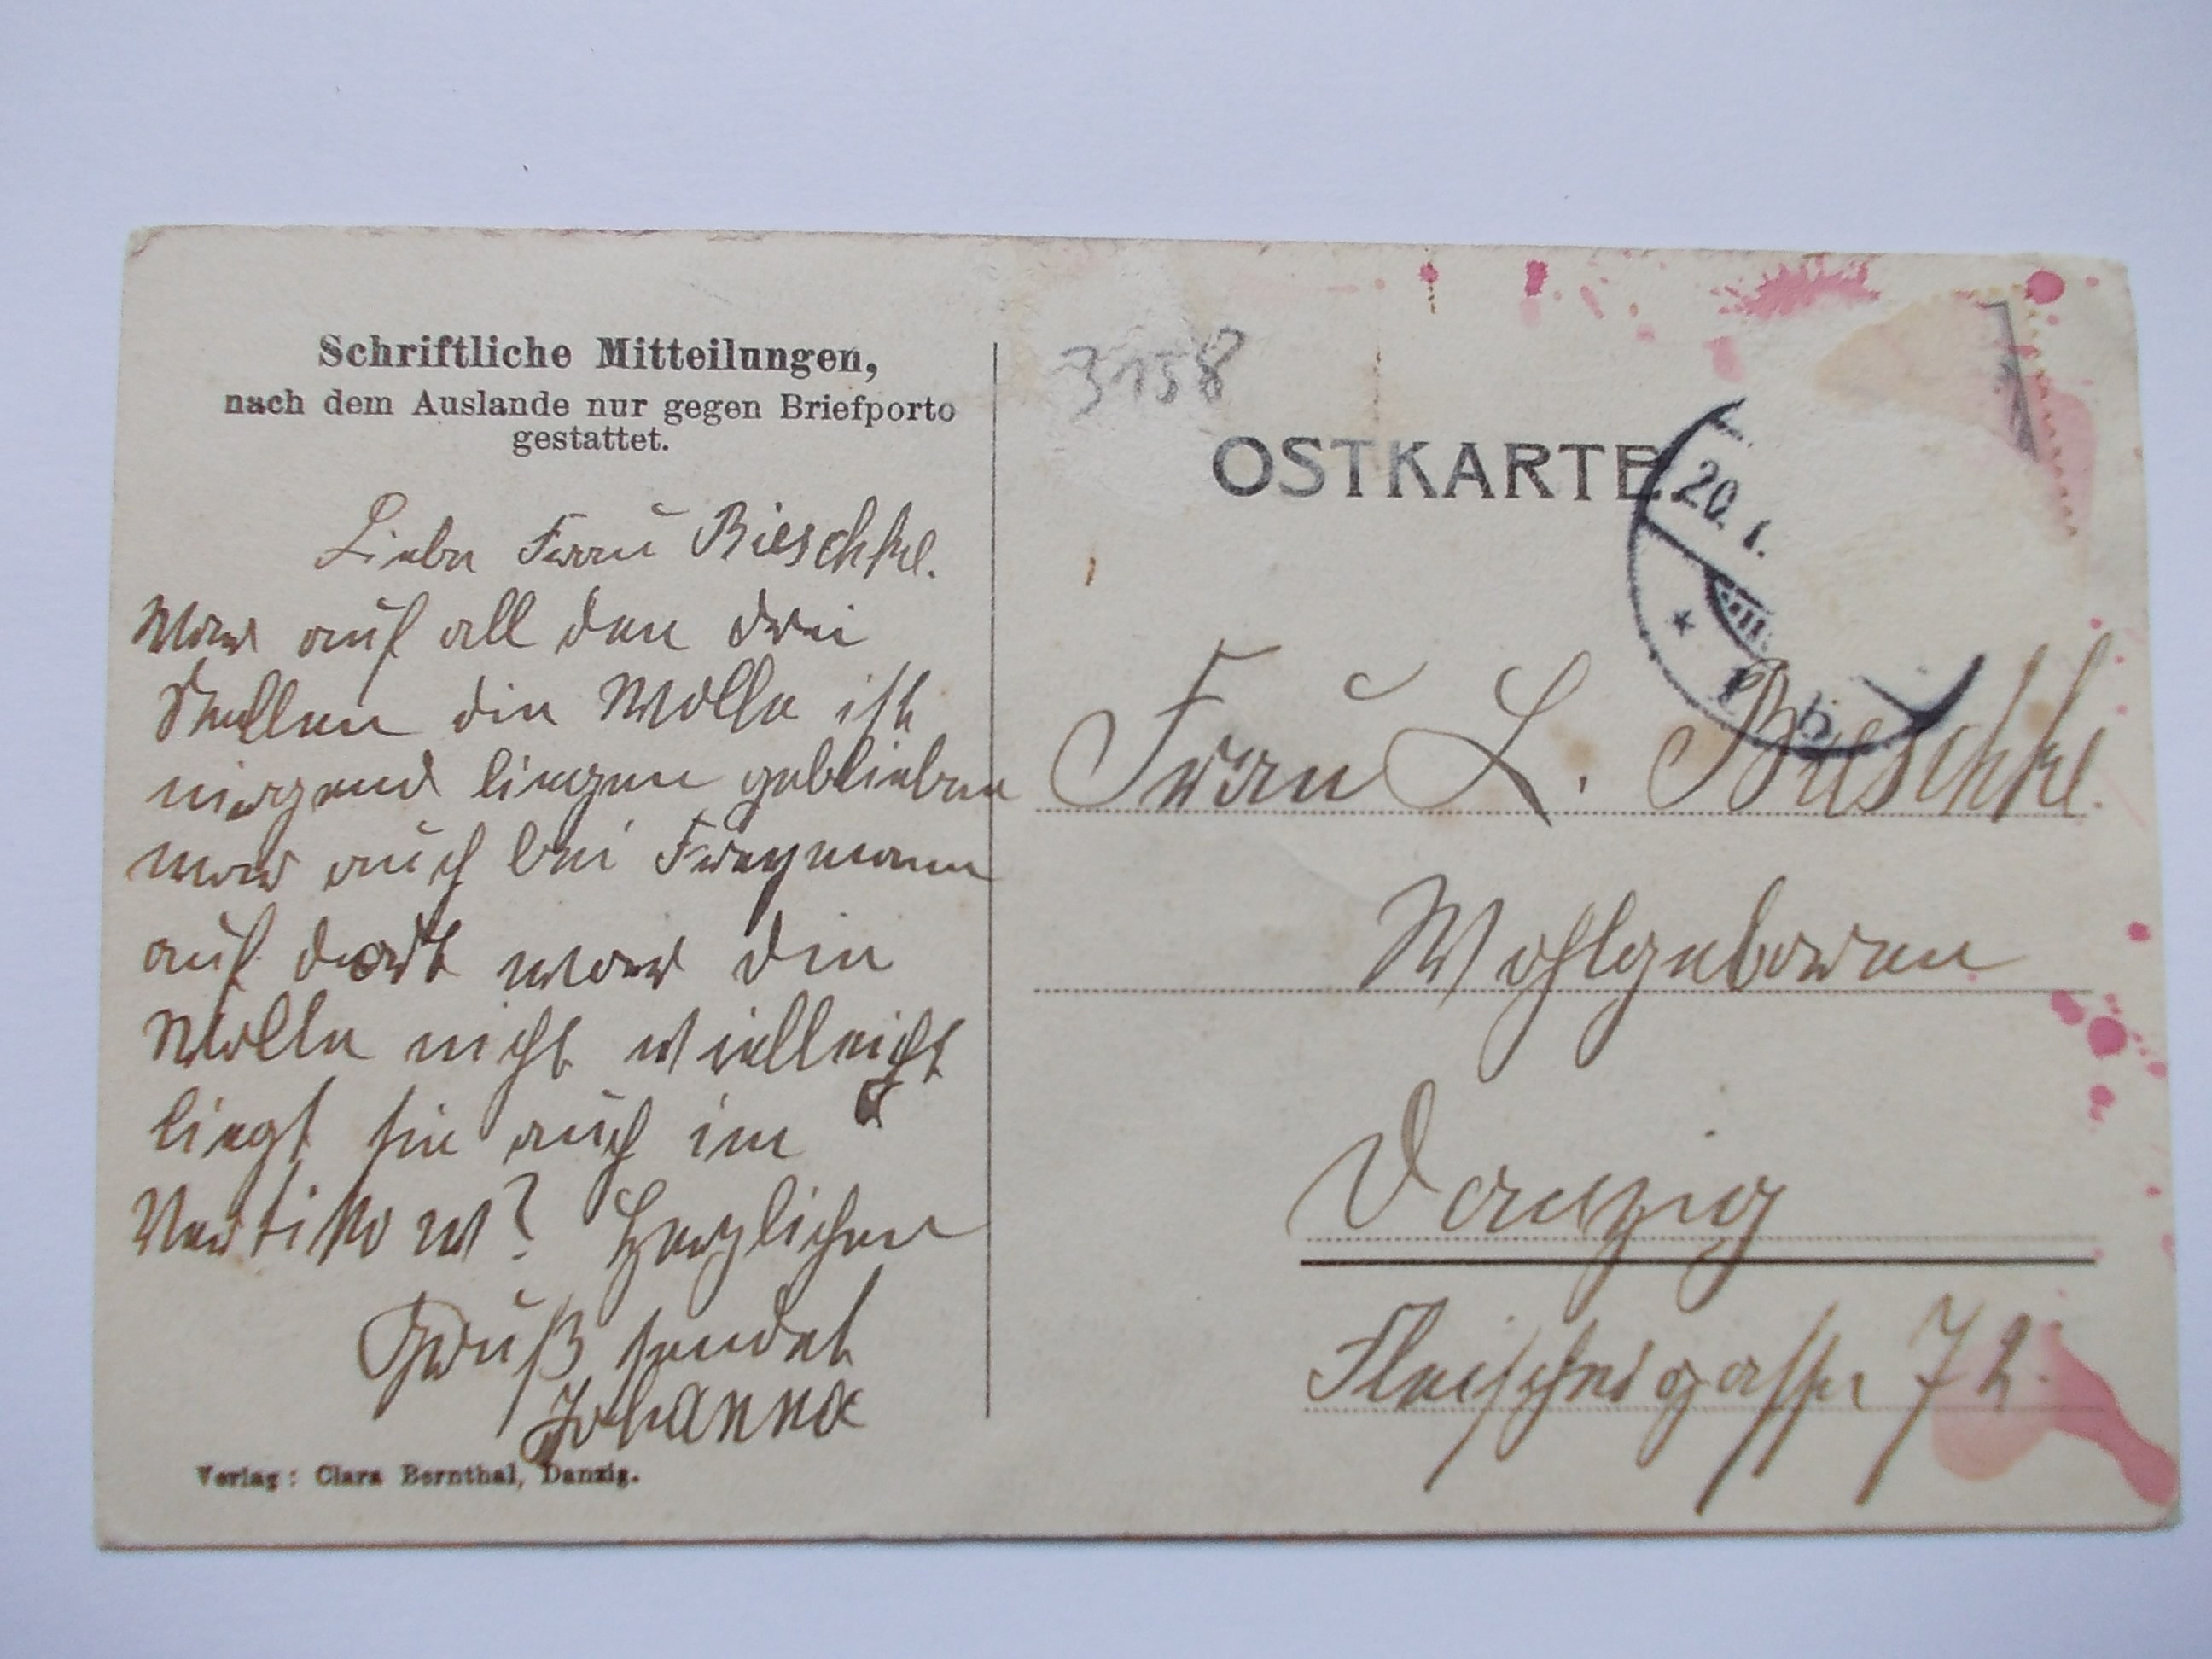 Schriftliche Mitteilungen,
nach dem Auslande nur gegen Briefporto
gestattet.
Liebe Frau Bieschke.
War auf all den drei
Stellen die Wolle ist
nirgend liegen geblieben
war auch bei Freymann
auf dort war die
Wolle nicht vielleicht
liegt sie auch im
Vertikow? Herzlichen
Gruß sendet
Johanna
Verlag: Clara Bernthal, Danzig.
3158
OSTKARTE
20.1.
Frau L. Bieschke.
Wohlgeboren
Danzig
Fleischergasse 72.